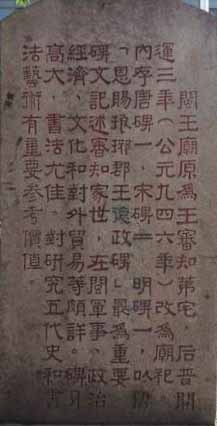 閩王廟原為王審知第宅，后晉開
運三年（公元九四六年）改為廟祀。
内存唐碑一、宋碑一、明碑一，以
「恩賜琅琊郡王德政碑」最為重要
碑文記述審知家世，在閩軍事、政治
經濟、文化和對外貿易等頗詳。碑身
高大，書法尤佳。對研究五代史和書
法藝術有重要参考價值。